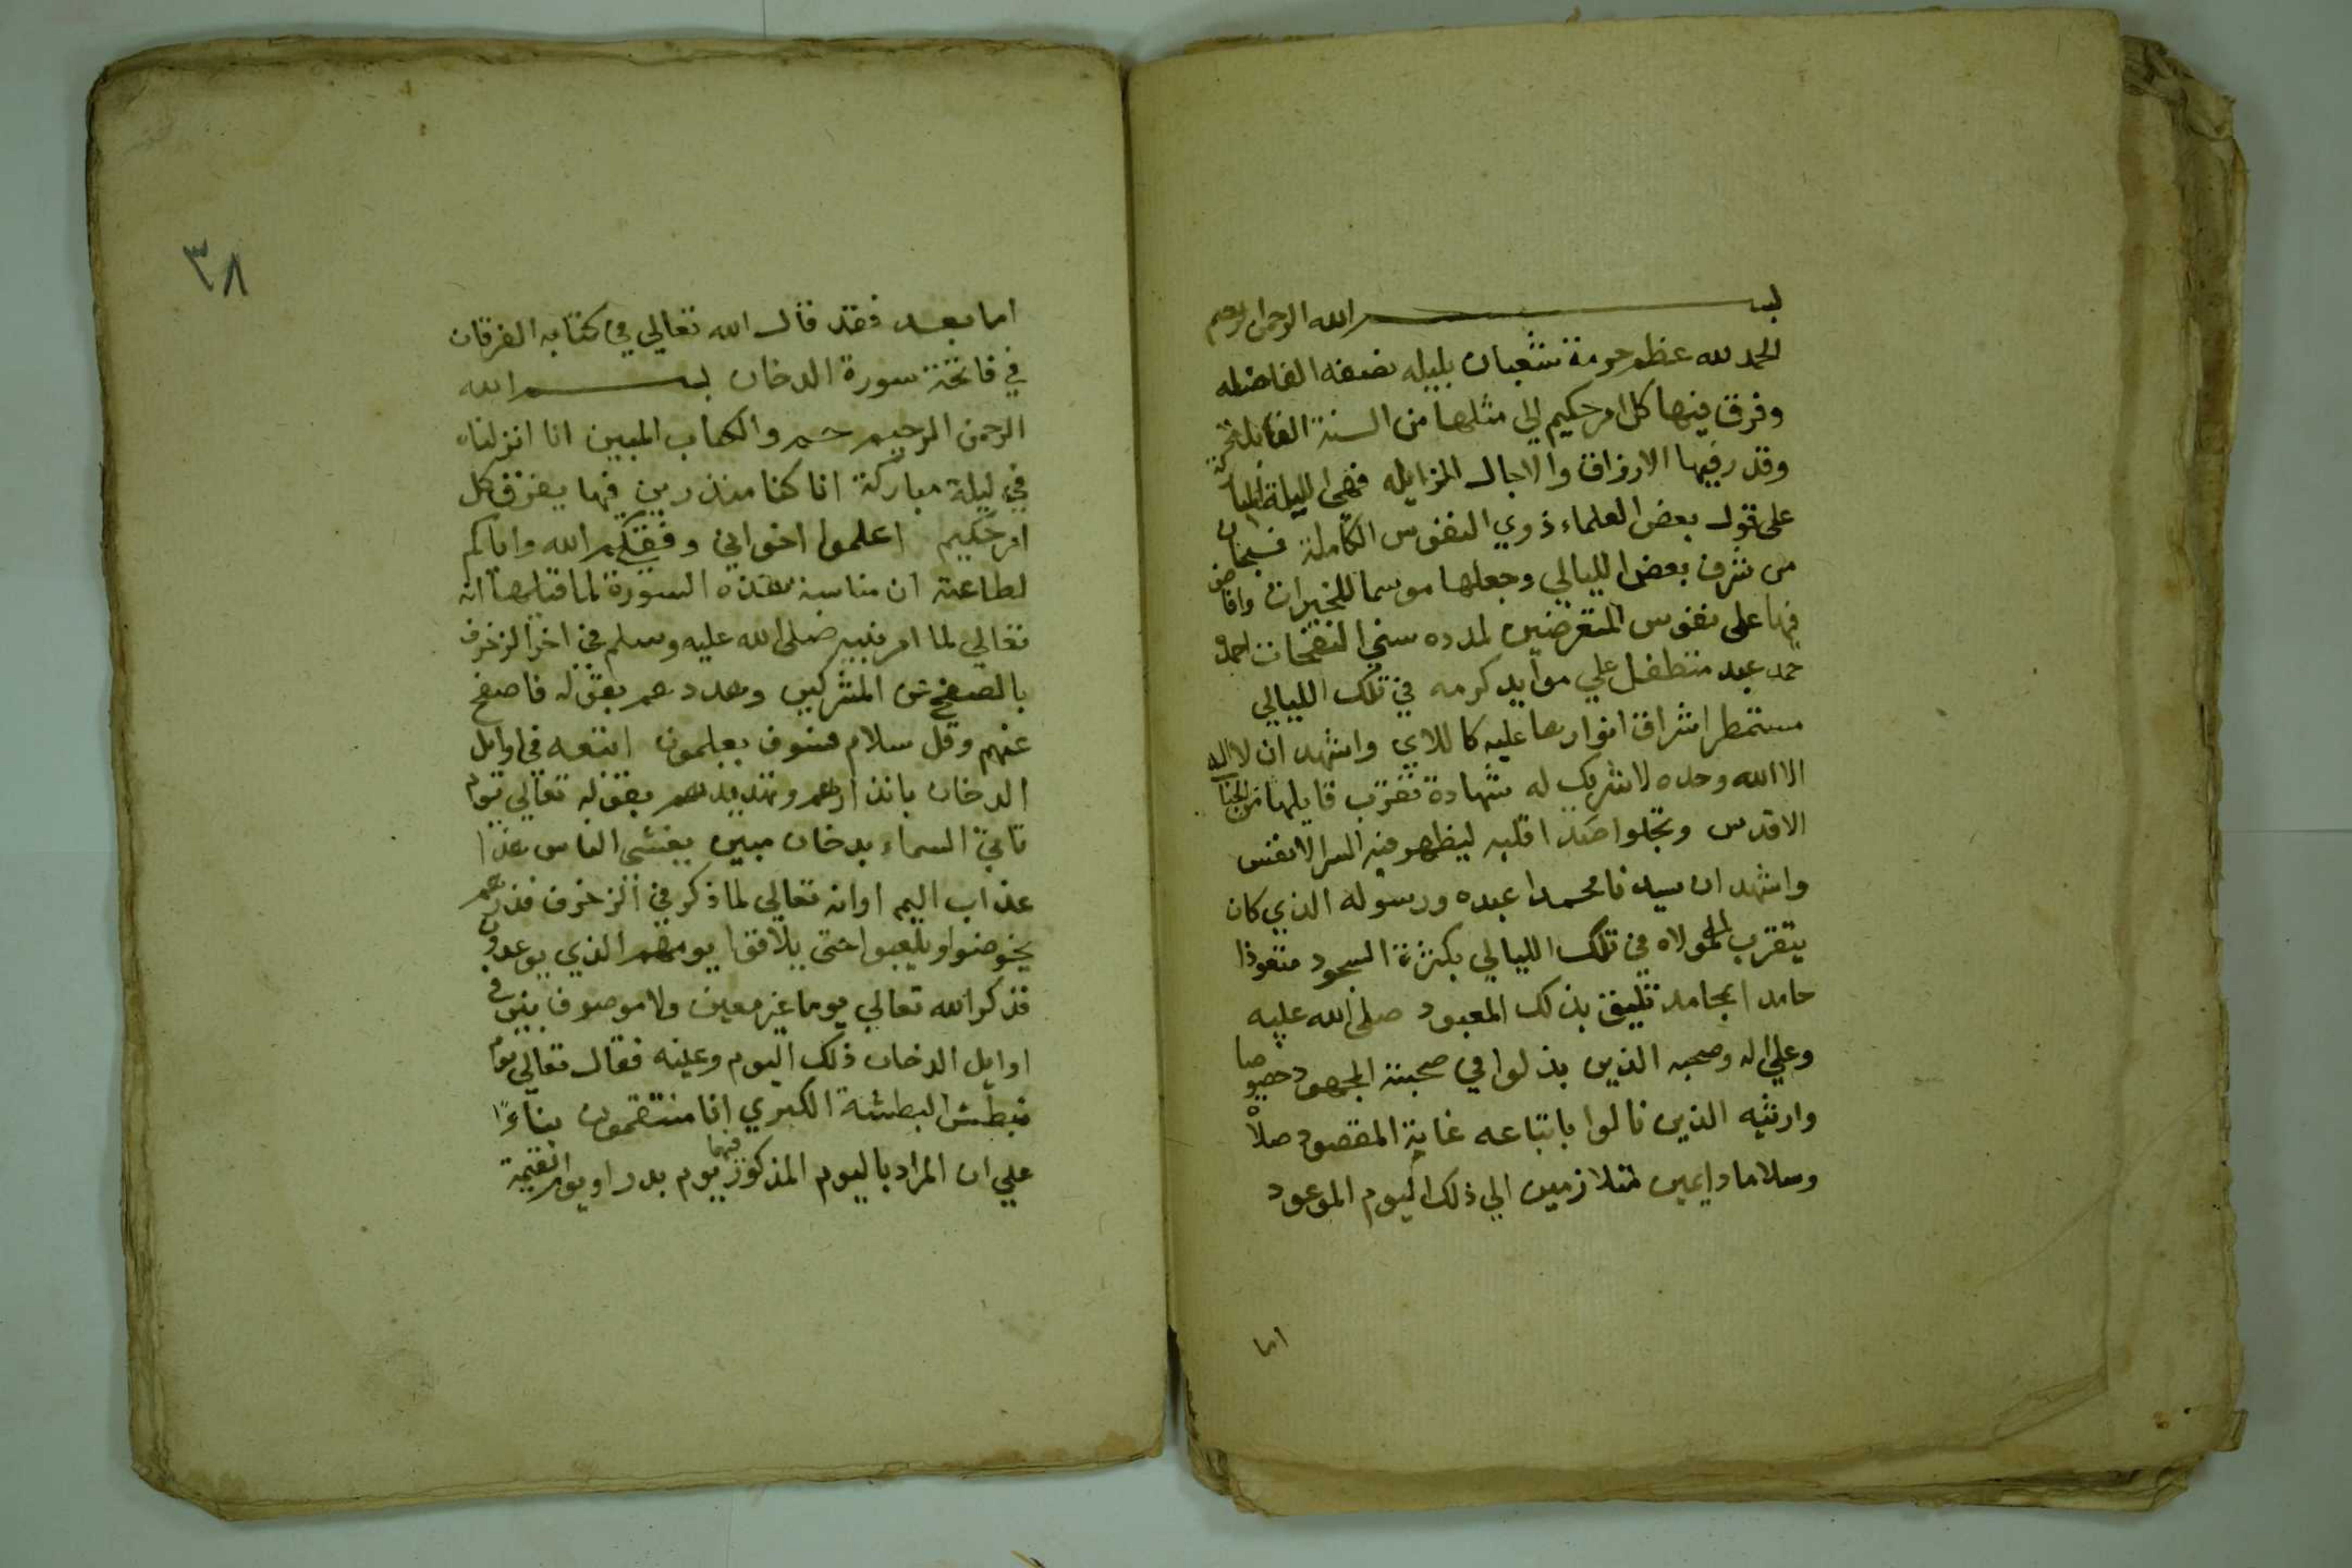 بسم الله الرحمن الرحيم
الحمد لله عظم حرمة شعبان بليله نصفه الفاضله
وفرق فيها كل امر حكيم الي مثلها من السنة القابله
وقدر فيها الارزاق والاجال المزايله فهي الليلة المباركة
علي قول بعض العلماء ذوي النفوس الكاملة فسبحان
من شرف بعض الليالي وجعلها موسما للخيرات وافاض
فيها علي نفوس المتعرضين لمدده سني النفحات احمده
حمد عبد متطفل علي موايد كرمه في تلك الليالي
مستمطر اشراق انوارها عليه كاللالي واشهد ان لا اله
الا الله وحده لا شريك له شهادة تقرب قايلها من الجناب
الاقدس وتجلوا صدا قلبه ليظهر فيه السر الانفس
واشهد ان سيدنا محمدا عبده ورسوله الذي كان
يتقرب لمولاه في تلك الليالي بكثرة السجود متعوذا
حامدا بمحامد تليق بذلك المعبود صلي الله عليه
وعلي اله وصحبه الذين بذلوا في صحبته المجهود خصوصا
وارثيه الذين نالوا باتباعه غاية المقصود صلاة
وسلاما دايمين متلازمين الي ذلك اليوم الموعود
اما
٣٨
اما بعد فقد قال الله تعالي في كتابه الفرقان
في فاتحة سورة الدخان بسم الله
الرحمن الرحيم حم والكتاب المبين انا انزلناه
في ليلة مباركة انا كنا منذرين فيها يفرق كل
امر حكيم اعلموا اخواني وفقكم الله واياكم
لطاعته ان مناسبة هذه السورة لما قبلها انه
تعالي لما امر نبيه صلي الله عليه وسلم في اخر الزخرف
بالصفح عن المشركين وهددهم بقوله فاصفح
عنهم وقل سلام فسوف يعلمون اتبعه في اوايل
الدخان بانذارهم وتهديدهم بقوله تعالي يوم
تاتي السماء بدخان مبين يغشي الناس هذا
عذاب اليم او انه تعالي لما ذكر في الزخرف فذرهم
يخوضوا ويلعبوا حتي يلاقوا يومهم الذي يوعدون
فذكر الله تعالي يوما غير معين ولا موصوف بين في
اوايل الدخان ذلك اليوم وعينه فقال تعالي يوم
نبطش البطشة الكبري انا منتقمون بناءً
علي ان المراد باليوم المذكور فيها يوم بدر او يوم القيمة